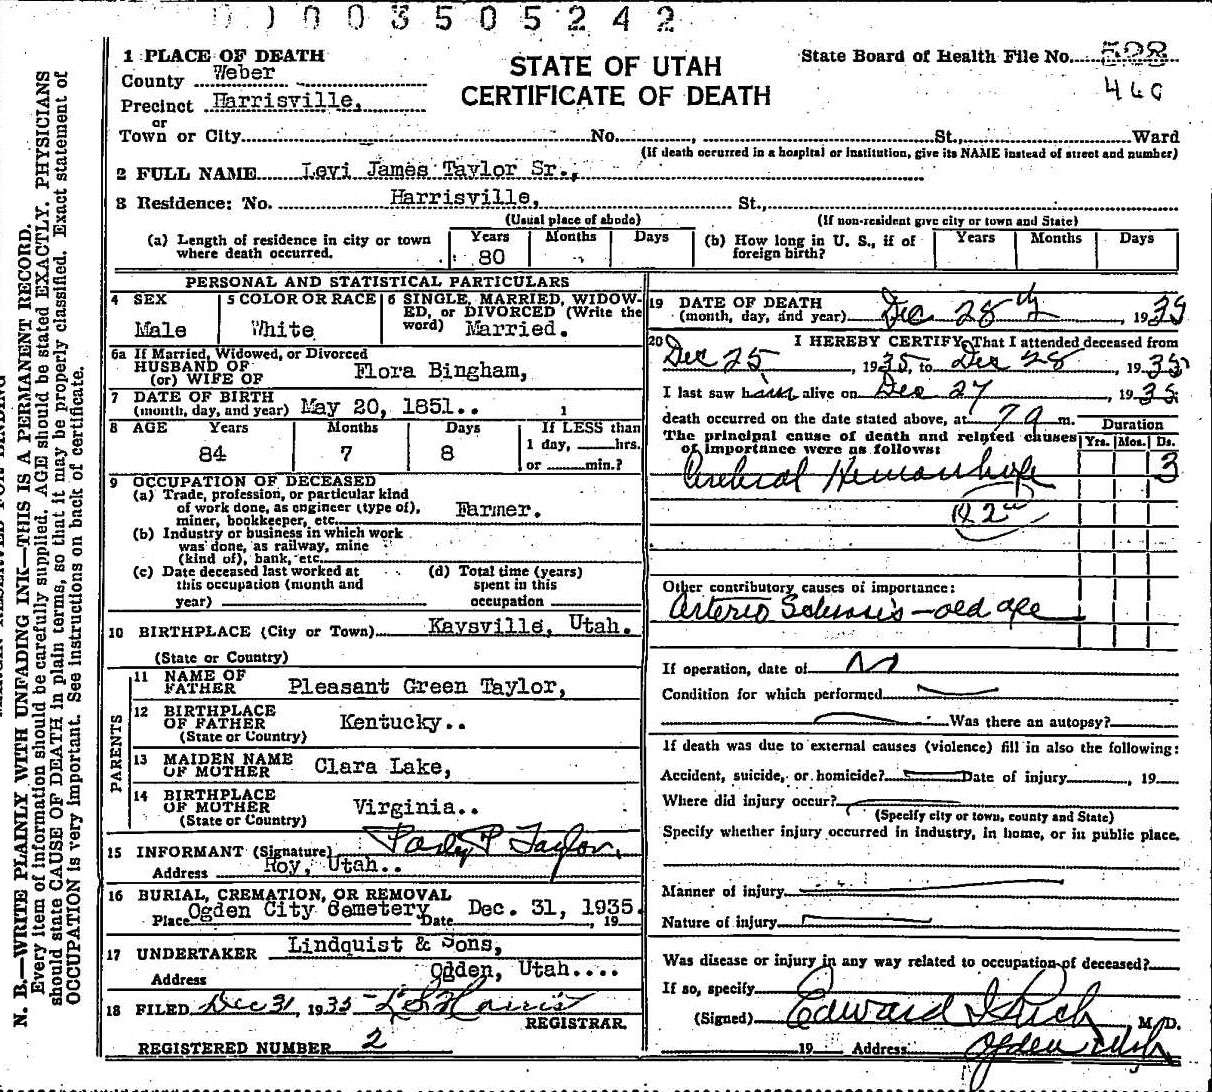 0 0 0 3 5 0 5 2 4 2
N. B.—WRITE PLAINLY WITH UNFADING INK—THIS IS A PERMANENT RECORD.
Every item of information should be carefully supplied. AGE should be stated EXACTLY. PHYSICIANS
should state CAUSE OF DEATH in plain terms, so that it may be properly classified. Exact statement of
OCCUPATION is very important. See instructions on back of certificate.
STATE OF UTAH
CERTIFICATE OF DEATH
State Board of Health File No. 528
460
1 PLACE OF DEATH
County Weber
Precinct Harrisville,
or
Town or City No. , St., Ward
(If death occurred in a hospital or institution, give its NAME instead of street and number)
2 FULL NAME Levi James Taylor Sr.,
3 Residence: No. Harrisville, St.,
(Usual place of abode) (If non-resident give city or town and State)
(a) Length of residence in city or town where death occurred. Years 80 Months Days
(b) How long in U. S., if of foreign birth? Years Months Days
PERSONAL AND STATISTICAL PARTICULARS
4 SEX Male
5 COLOR OR RACE White
6 SINGLE, MARRIED, WIDOWED, or DIVORCED (Write the word) Married.
6a If Married, Widowed, or Divorced
HUSBAND OF
(or) WIFE OF Flora Bingham,
7 DATE OF BIRTH
(month, day, and year) May 20, 1851..
8 AGE Years 84 Months 7 Days 8
If LESS than
1 day, hrs.
or min.?
9 OCCUPATION OF DECEASED
(a) Trade, profession, or particular kind
of work done, as engineer (type of),
miner, bookkeeper, etc. Farmer.
(b) Industry or business in which work
was done, as railway, mine
(kind of), bank, etc.
(c) Date deceased last worked at
this occupation (month and
year)
(d) Total time (years)
spent in this
occupation
10 BIRTHPLACE (City or Town) Kaysville, Utah.
(State or Country)
PARENTS
11 NAME OF
FATHER Pleasant Green Taylor,
12 BIRTHPLACE
OF FATHER Kentucky..
(State or Country)
13 MAIDEN NAME
OF MOTHER Clara Lake,
14 BIRTHPLACE
OF MOTHER Virginia..
(State or Country)
15 INFORMANT (Signature) P Taylor.
Address Roy, Utah..
16 BURIAL, CREMATION, OR REMOVAL
Place Ogden City Cemetery Date Dec. 31, 1935. , 19
17 UNDERTAKER Lindquist & Sons,
Address Ogden, Utah....
18 FILED Dec 31, 1935 Harris
REGISTRAR.
REGISTERED NUMBER 2
19 DATE OF DEATH
(month, day, and year) Dec 28th, 1935
20 I HEREBY CERTIFY, That I attended deceased from
Dec 25, 1935, to Dec 28, 1935
I last saw him alive on Dec 27, 1935
death occurred on the date stated above, at 7 a m.
The principal cause of death and related causes
of importance were as follows:
Duration
Yrs. Mos. Ds.
Cerebral Hemorrhage 3
Other contributory causes of importance:
Arterio Sclerosis — old age
If operation, date of
Condition for which performed
Was there an autopsy?
If death was due to external causes (violence) fill in also the following:
Accident, suicide, or homicide? Date of injury , 19
Where did injury occur?
(Specify city or town, county and State)
Specify whether injury occurred in industry, in home, or in public place.
Manner of injury
Nature of injury
Was disease or injury in any way related to occupation of deceased?
If so, specify
(Signed) Edward I Rich, M. D.
19 Address Ogden Utah